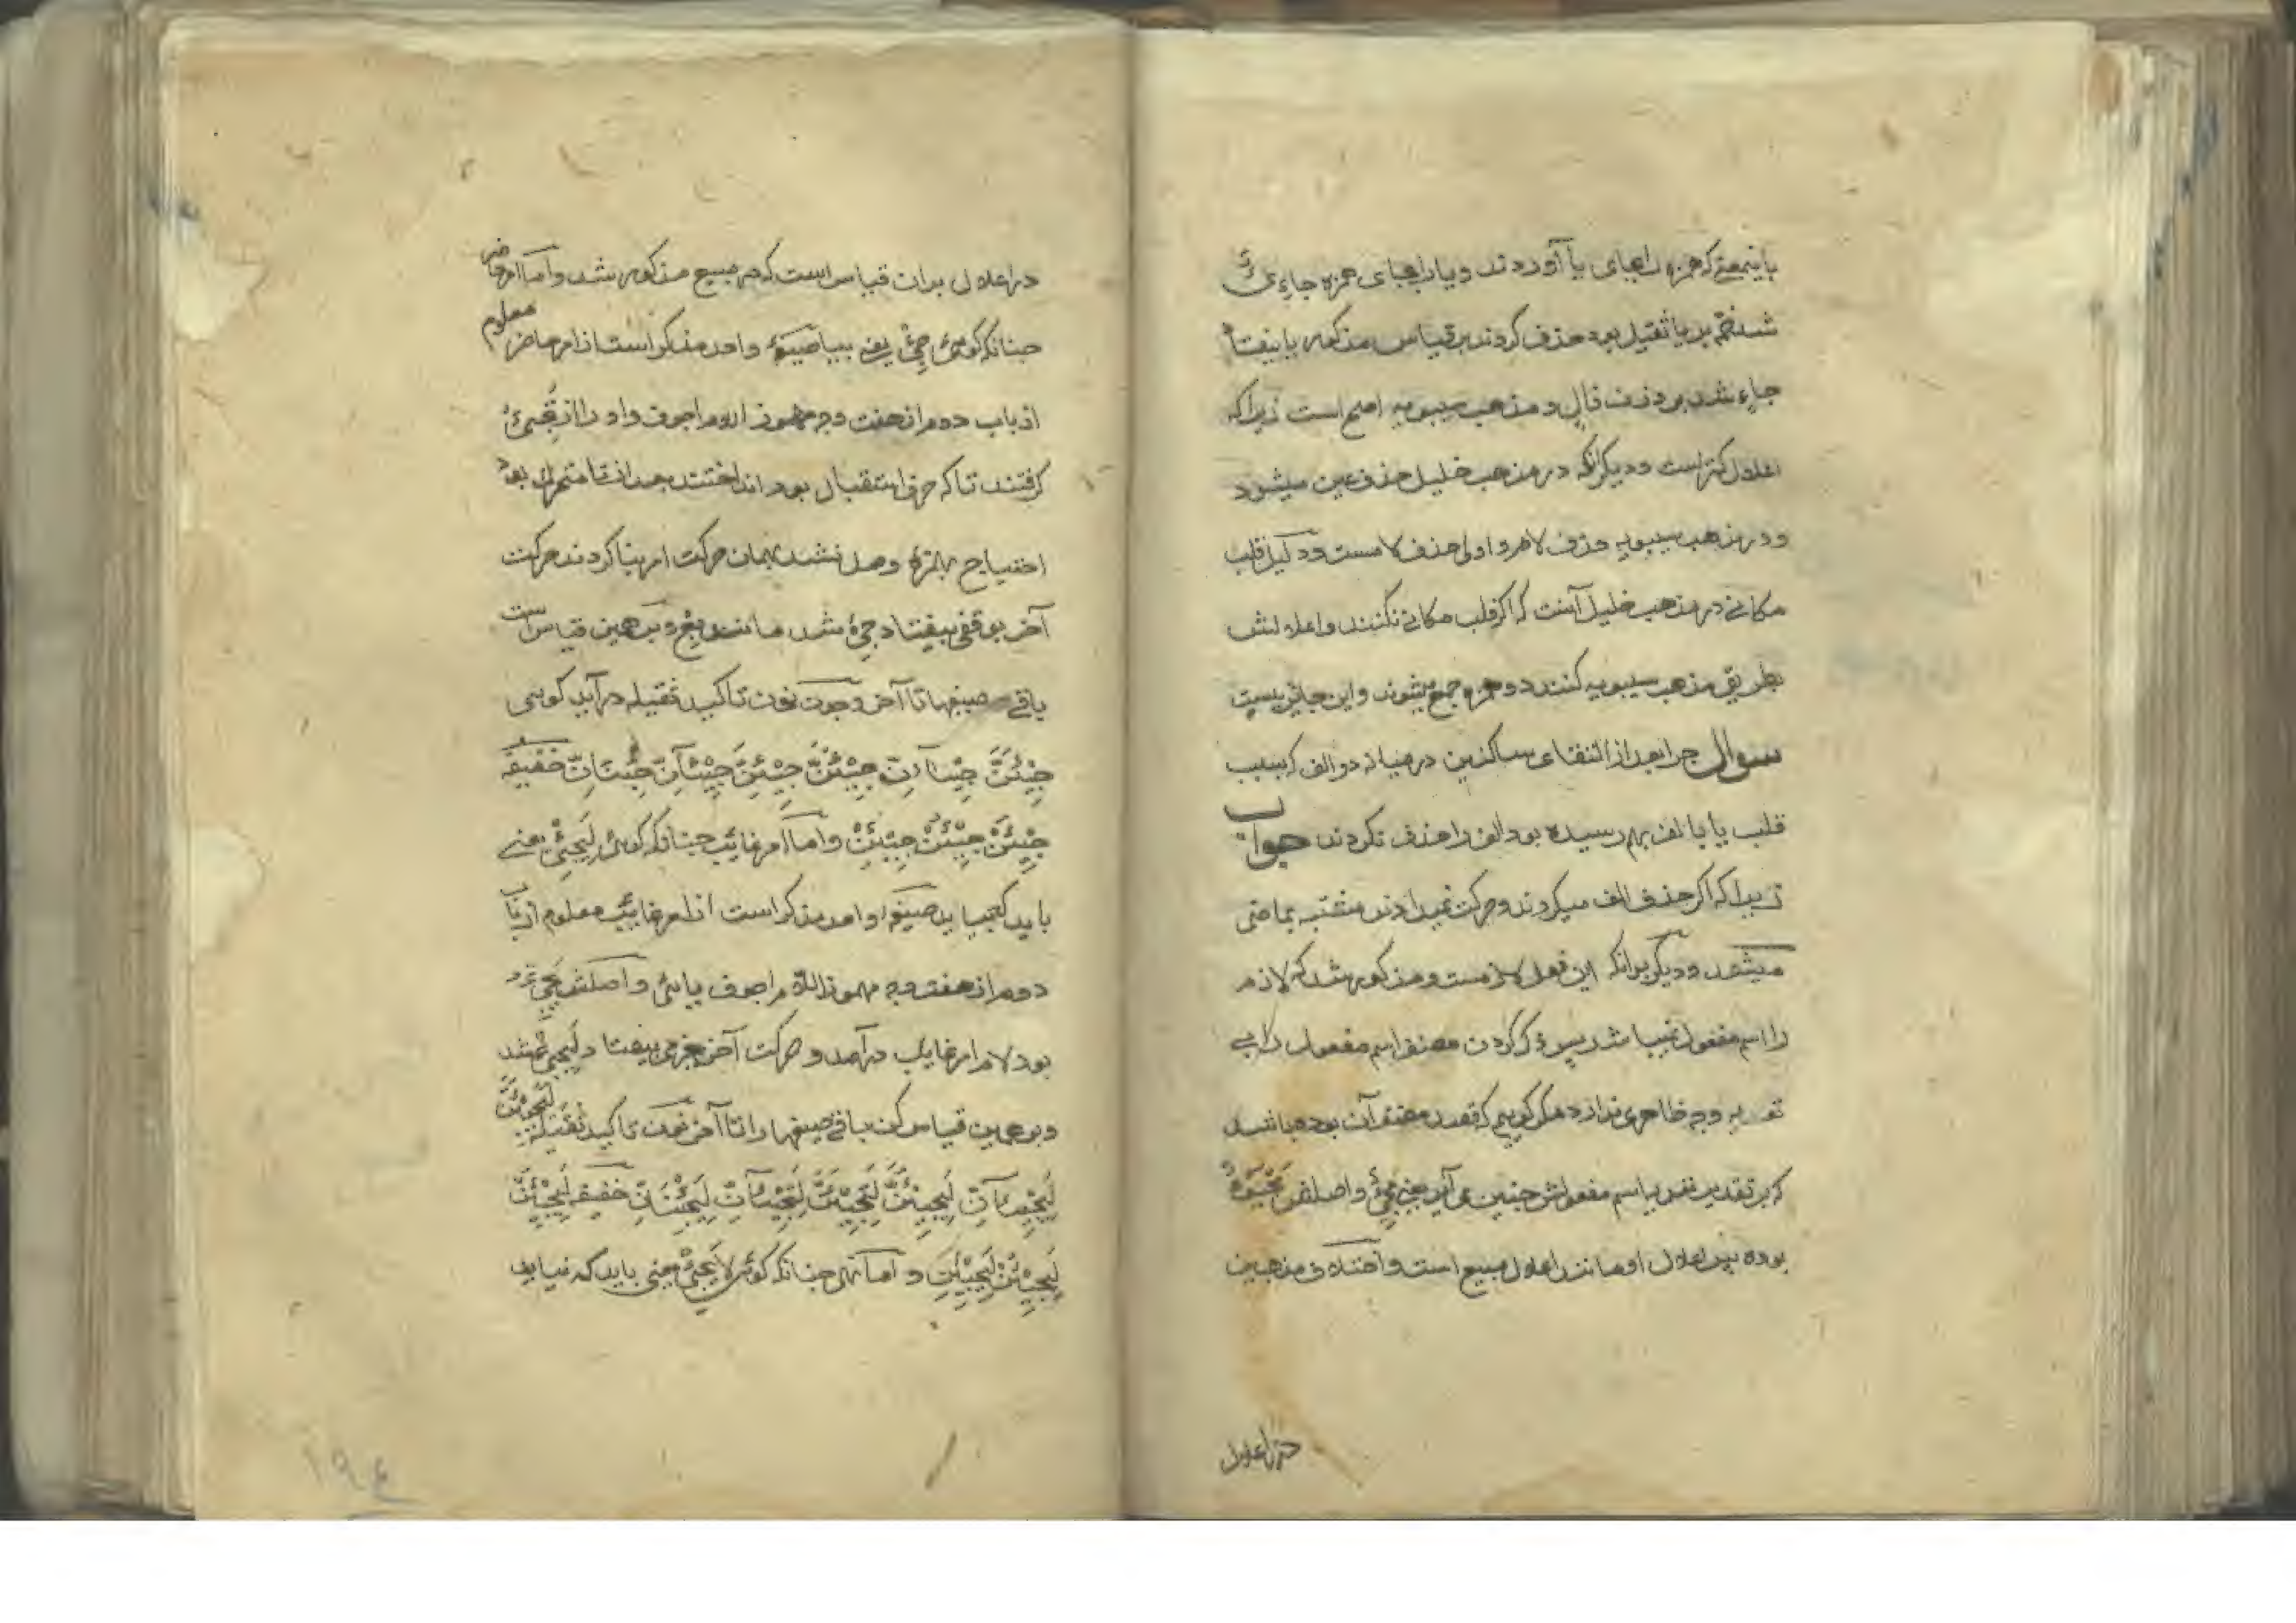 باینمعنی که همزه را بجای یا آوردند و یا را بجای همزه جاءِیٌ
شد ضمه بر یا ثقیل بود حذف کردند بر قیاس مذکور یا بیفتاد
جاءٍ شد بر وزن فالٍ و مذهب سیبویه اصح است زیرا که
اعلال کمتر است و دیگر آنکه در مذهب خلیل حذف عین میشود
و در مذهب سیبویه حذف لام و اولی حذف لامست و دلیل قلب
مکانی در مذهب خلیل آنست که اکر قلب مکانی نکنند و اعلالش
بطریق مذهب سیبویه کنند دو همزه جمع میشوند و این جائز نیست
سوال چرا بعد از التقاء ساکنین در میانه دو الف که بسبب
قلب یا با الف بهم رسیده بود الف را حذف نکردند جواب
زیرا که اکر حذف الف میکردند و حرکت نمیدادند مشتبه بماضی
میشود و دیگر بدانکه این فعل لازمست و مذکور شد که لازم
را اسم مفعول نمیباشد پس ذکر کردن مصنف اسم مفعول را بی
تعدیه وجه ظاهری ندارد مکر کوییم که قصد مصنف آن بوده باشد
که بر تقدیر تعدیه اسم مفعولش چنین می آید یعنی مَجِیءٌ و اصلش مَجْیُوءٌ
بوده پس اعلال او مانند اعلال مبیع است و اختلاف مذهبین
در اعلال
در اعلال بر ان قیاس است که در مبیع مذکور شد و اما امر حاضر
چنانکه کوئی جِئْ یعنی بیا صیغهٔ واحد مذکر است از امر حاضر معلوم
از باب دوم از هفت وجه مهموز اللام اجوف و او را از تَجِیءُ
کرفتند تا که حرف استقبال بود انداختند بعد از تا متحرک بود
احتیاج بهمزهٔ وصل نشد بهمان حرکت امر بنا کردند حرکت
آخر بوقفی بیفتاد جِیْٔ شد مانند بِعْ و بر همین قیاس است
باقی صیغها تا آخر و چون نون تاکید ثقیله در آید کوئی
جِیْئَنَّ جِیْئَآنِّ جِیْئُنَّ جِیْئِنَّ جِیْئَآنِّ جِئْنَانِّ خفیفه
جِیْئَنْ جِیْئُنْ جِیْئِنْ و اما امر غایب چنانکه کوئی لِیَجِئْ یعنی
باید که بیاید صیغهٔ واحد مذکر است از امر غایب معلوم از باب
دوم از هفت وجه مهموز اللام اجوف یائی و اصلش یَجِیءُ
بود لام امر غایب در آمد و حرکت آخر بجزمی بیفتاد لِیَجِئْ شد
و بر همین قیاس کن باقی صیغها را تا آخر نون تاکید ثقیله لِیَجِیْئَنَّ
لِیَجِیْئَآنِّ لِیَجِیْئُنَّ لِتَجِیْئَنَّ لِتَجِیْئَآنِّ لِیَجِئْنَانِّ خفیفه لِیَجِیْئَنْ
لِیَجِیْئُنْ لِتَجِیْئَنْ و اما نهی چنانکه کوئی لَا یَجِئْ یعنی باید که نیاید
۱۹٤